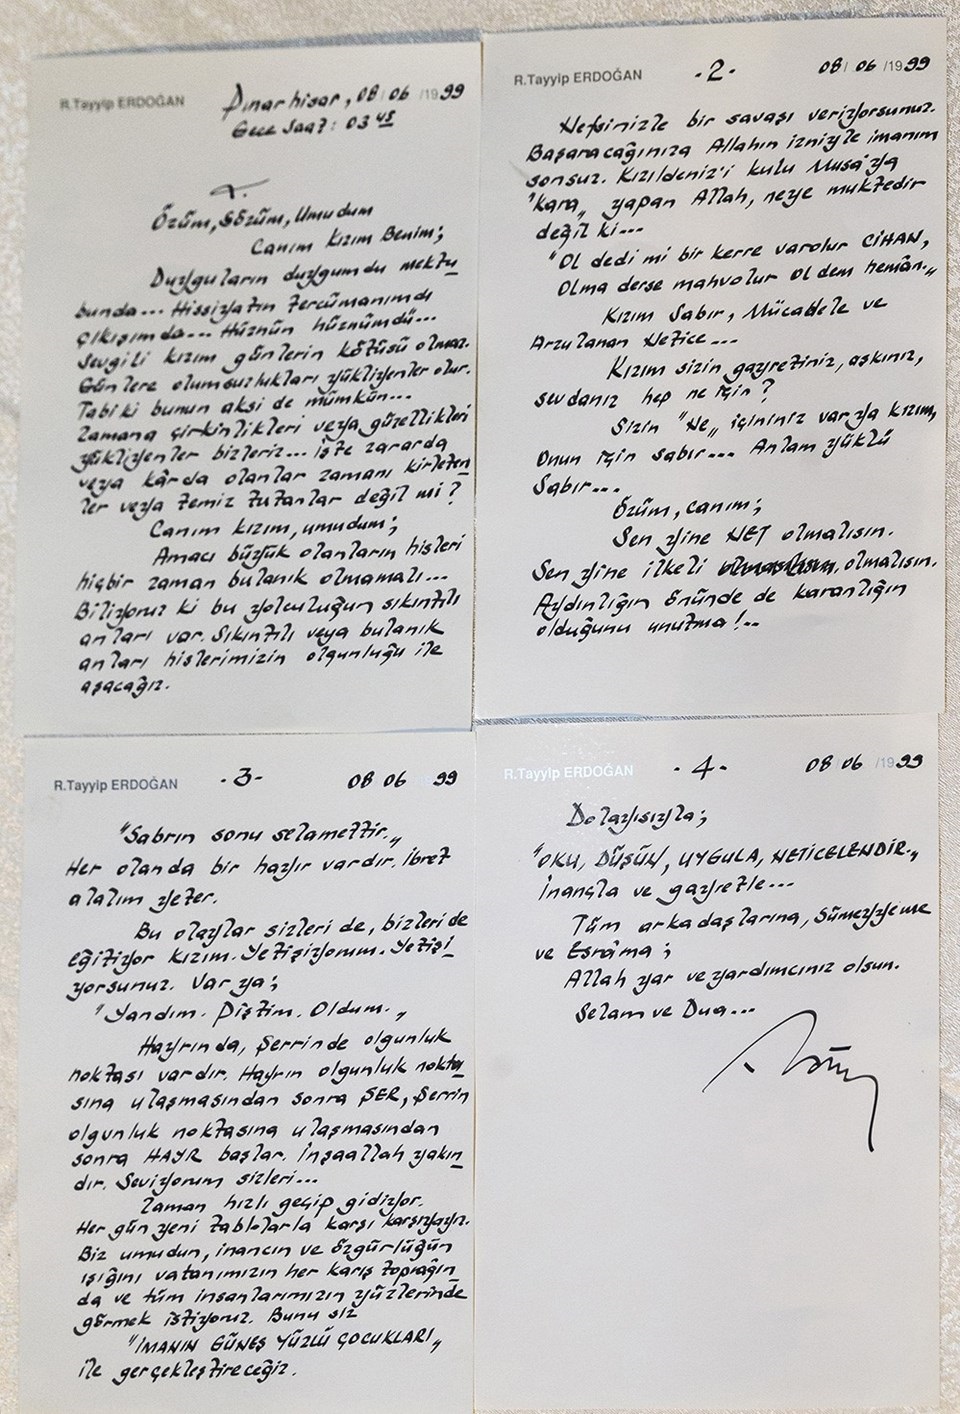 R.Tayyip ERDOĞAN
Pınarhisar, 08/06/1999
Gece Saat: 03 45
Özüm, Sözüm, Umudum
Canım Kızım Benim;
Duyguların duygumdu mektu
bunda... Hissiyatın tercümanımdı
çıkışımda... Hüznün hüznümdü...
Sevgili kızım günlerin kötüsü olmaz.
Günlere olumsuzlukları yükliyenler olur.
Tabiki bunun aksi de mümkün...
Zamana çirkinlikleri veya güzellikleri
yükliyenler bizleriz... İşte zararda
veya kârda olanlar zamanı kirleten
ler veya temiz tutanlar değil mi?
Canım kızım, umudum;
Amacı büyük olanların hisleri
hiçbir zaman bulanık olmamalı...
Biliyoruz ki bu yolculuğun sıkıntılı
anları var. Sıkıntılı veya bulanık
anları hislerimizin olgunluğu ile
aşacağız.
R.Tayyip ERDOĞAN -2- 08/06/1999
Nefsinizle bir savaşı veriyorsunuz.
Başaracağınıza Allahın izniyle imanım
sonsuz. Kızıldeniz'i kulu Musa'ya
"kara" yapan Allah, neye muktedir
değil ki...
"Ol dedi mi bir kerre varolur CİHAN,
Olma derse mahvolur ol dem hemân."
Kızım Sabır, Mücadele ve
Arzulanan Netice...
Kızım sizin gayretiniz, aşkınız,
sevdanız hep ne için?
Sizin "Ne" içininiz var ya kızım,
Onun için sabır... Anlam yüklü
Sabır...
Özüm, canım;
Sen yine NET olmalısın.
Sen yine ilkeli olmalısın.
Aydınlığın önünde de karanlığın
olduğunu unutma!..
R.Tayyip ERDOĞAN -3- 08 06 99
"Sabrın sonu selamettir."
Her olanda bir hayır vardır. İbret
alalım yeter.
Bu olaylar sizleri de, bizleri de
eğitiyor kızım. Yetişiyorum. Yetişi
yorsunuz. Var ya;
"Yandım. Piştim. Oldum."
Hayrında, Şerrinde olgunluk
noktası vardır. Hayrın olgunluk nokta
sına ulaşmasından sonra ŞER, Şerrin
olgunluk noktasına ulaşmasından
sonra HAYR başlar. İnşaallah yakın
dır. Seviyorum sizleri...
Zaman hızlı geçip gidiyor.
Her gün yeni tablolarla karşı karşıyayız.
Biz umudun, inancın ve özgürlüğün
ışığını vatanımızın her karış toprağın
da ve tüm insanlarımızın yüzlerinde
görmek istiyoruz. Bunu siz
"İMANIN GÜNEŞ YÜZLÜ ÇOCUKLARI"
ile gerçekleştireceğiz.
R.Tayyip ERDOĞAN -4- 08 06/1999
Dolayısıyla;
"OKU, DÜŞÜN, UYGULA, NETİCELENDİR."
İnançla ve gayretle...
Tüm arkadaşlarına, Sümeyyeme
ve Esrâma;
Allah yar ve yardımcınız olsun.
Selam ve Dua...